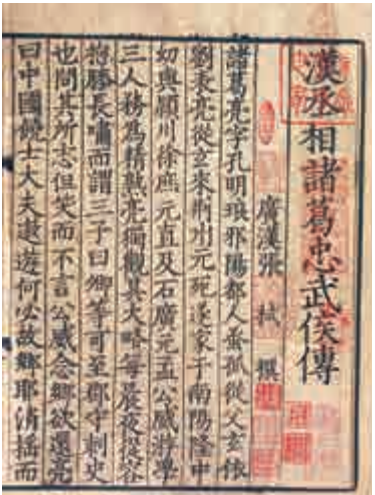 漢丞相諸葛忠武侯傳
廣漢張 栻 撰
諸葛亮字孔明琅邪陽都人蚤孤從父玄依
劉表亮從玄來荊州玄死遂家于南陽隆中
初與潁川徐庶元直及石廣元孟公威游學
三人務爲精熟亮獨觀其大略每晨夜從容
抱膝長嘯而謂三子曰卿等可至郡守刺史
也問其所志但笑而不言公威念鄉欲還亮
曰中國饒士大夫遨遊何必故鄉耶清揺而